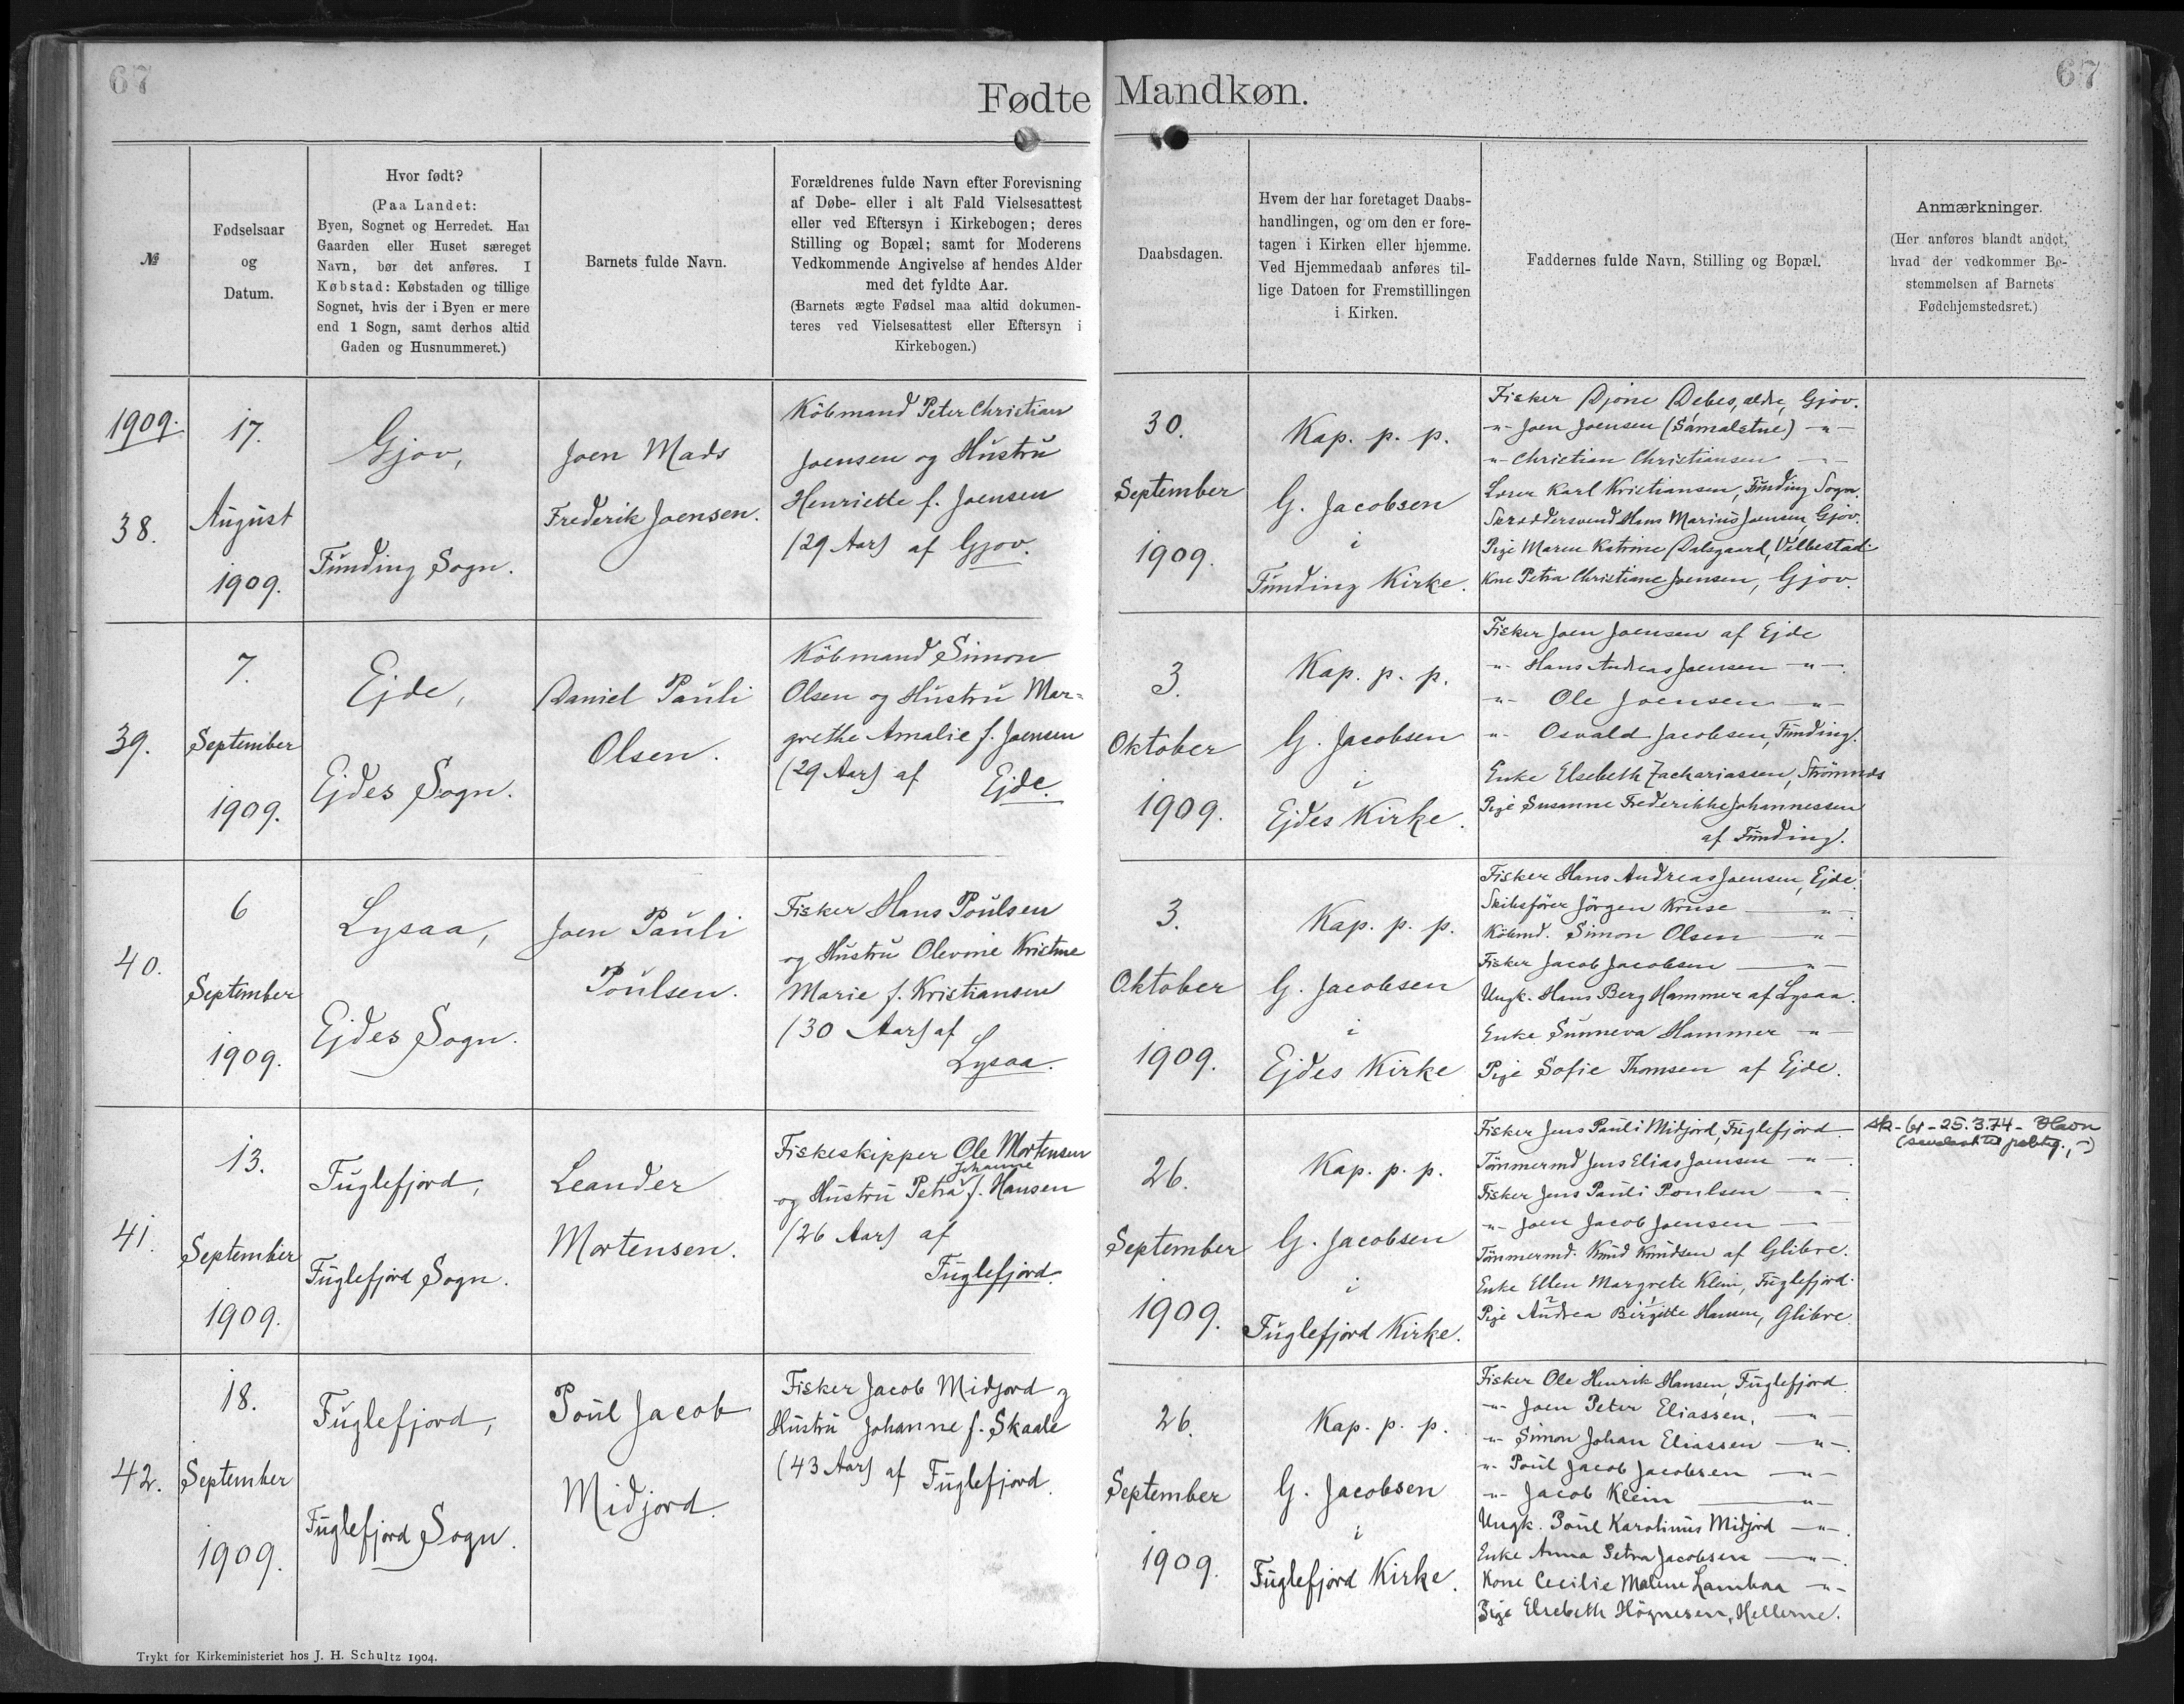 67
Fødte Mandkøn.
67
№
Fødselsaar
og
Datum.
Hvor født?
(Paa Landet:
Byen, Sognet og Herredet. Har
Gaarden eller Huset særeget
Navn, bør det anføres. I
Købstad: Købstaden og tillige
Sognet, hvis der i Byen er mere
end 1 Sogn, samt derhos altid
Gaden og Husnummeret.)
Barnets fulde Navn.
Forældrenes fulde Navn efter Forevisning
af Døbe- eller i alt Fald Vielsesattest
eller ved Eftersyn i Kirkebogen; deres
Stilling og Bopæl; samt for Moderens
Vedkommende Angivelse af hendes Alder
med det fyldte Aar.
(Barnets ægte Fødsel maa altid dokumen-
teres ved Vielsesattest eller Eftersyn i
Kirkebogen.)
Daabsdagen.
Hvem der har foretaget Daabs-
handlingen, og om den er fore-
tagen i Kirken eller hjemme.
Ved Hjemmedaab anføres til-
lige Datoen for Fremstillingen
i Kirken.
Faddernes fulde Navn, Stilling og Bopæl.
Anmærkninger.
(Her anføres blandt andet,
hvad der vedkommer Be-
stemmelsen af Barnets
Fødehjemstedsret.)
1909.
38.
17.
August
1909.
Gjov,
Funding Sogn.
Joen Mads
Frederik Joensen.
Købmand Peter Christian
Joensen og Hustru
Henriette f. Joensen
(29 Aar) af Gjov.
30.
September
1909.
Kap. p. p.
G. Jacobsen
i
Funding Kirke.
Fisker Djone Debes, ældre, Gjov.
-"- Joen Joensen (Sámalstue) -"-
-"- Christian Christiansen -"-
Lærer Karl Kristiansen, Funding Sogn.
Skræddersvend Hans Marius Joensen, Gjov.
Pige Maren Katrine Dalsgaard, Velbestad
Kone Petra Christiane Joensen, Gjov.
39.
7.
September
1909.
Ejde,
Ejdes Sogn.
Daniel Pauli
Olsen.
Købmand Simon
Olsen og Hustru Mar=
grethe Amalie f. Joensen
(29 Aar) af Ejde.
3.
Oktober
1909.
Kap. p. p.
G. Jacobsen
i
Ejdes Kirke.
Fisker Joen Joensen af Ejde
-"- Hans Andreas Joensen -"-
-"- Ole Joensen -"-
-"- Osvald Jacobsen, Funding.
Enke Elsebeth Zachariassen, Strømnæs
Pige Susanne Frederikke Johannessen
af Funding.
40.
6
September
1909.
Lysaa,
Ejdes Sogn.
Joen Pauli
Poulsen.
Fisker Hans Poulsen
og Hustru Olevine Kristine
Marie f. Kristiansen
(30 Aar) af
Lysaa.
3.
Oktober
1909.
Kap. p. p.
G. Jacobsen
i
Ejdes Kirke
Fisker Hans Andreas Joensen, Ejde.
Skibsfører Jörgen Kruse -"-
Købmd. Simon Olsen -"-
Fisker Jacob Jacobsen -"-
Ungk. Hans Berg Hammer af Lysaa.
Enke Sunneva Hammer -"-
Pige Sofie Thomsen af Ejde.
41.
13.
September
1909.
Fuglefjord,
Fuglefjord Sogn.
Leander
Mortensen.
Fiskeskipper Ole Mortensen
Johanne
og Hustru Petra f. Hansen
(26 Aar) af
Fuglefjord.
26.
September
1909.
Kap. p. p.
G. Jacobsen
i
Fuglefjord Kirke.
Fisker Jens Pauli Midjord, Fuglefjord.
Tømmermd Jens Elias Joensen -"-
Fisker Jens Pauli Poulsen -"-
-"- Joen Jacob Joensen -"-
Tømmermd. Knud Knudsen af Glibre.
Enke Ellen Margrete Klein, Fuglefjord.
Pige Andrea Birgitte Hansen, Glibre.
25.3.74 - Havn
42.
18.
September
1909.
Fuglefjord,
Fuglefjord Sogn.
Poul Jacob
Midjord.
Fisker Jacob Midjord og
Hustru Johanne f. Skaale
(43 Aar) af Fuglefjord.
26.
September
1909.
Kap. p. p.
G. Jacobsen
i
Fuglefjord Kirke.
Fisker Ole Henrik Hansen, Fuglefjord.
-"- Joen Peter Eliassen, -"-
-"- Simon Johan Eliassen -"-
-"- Poul Jacob Jacobsen -"-
-"- Jacob Klein -"-
Ungk. Poul Karolinus Midjord -"-
Enke Anna Petra Jacobsen -"-
Kone Cecilie Malene Lambaa -"-
Pige Elsebeth Högnesen, Hellerne.
Trykt for Kirkeministeriet hos J. H. Schultz 1904.